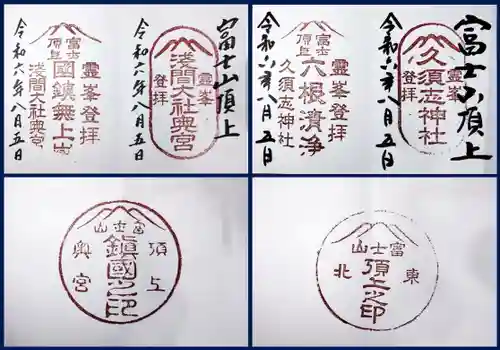 富士山頂上
霊峯
浅間大社奥宮
登拝
令和六年八月五日
霊峯登拝
富士頂上
国鎮無上嶽
浅間大社奥宮
令和六年八月五日
富士山頂上
霊峯
久須志神社
登拝
令和六年八月五日
霊峯登拝
富士頂上
六根清浄
久須志神社
令和六年八月五日
富士山
頂上
鎮國之印
奥宮
富士山
東北
頂上之印